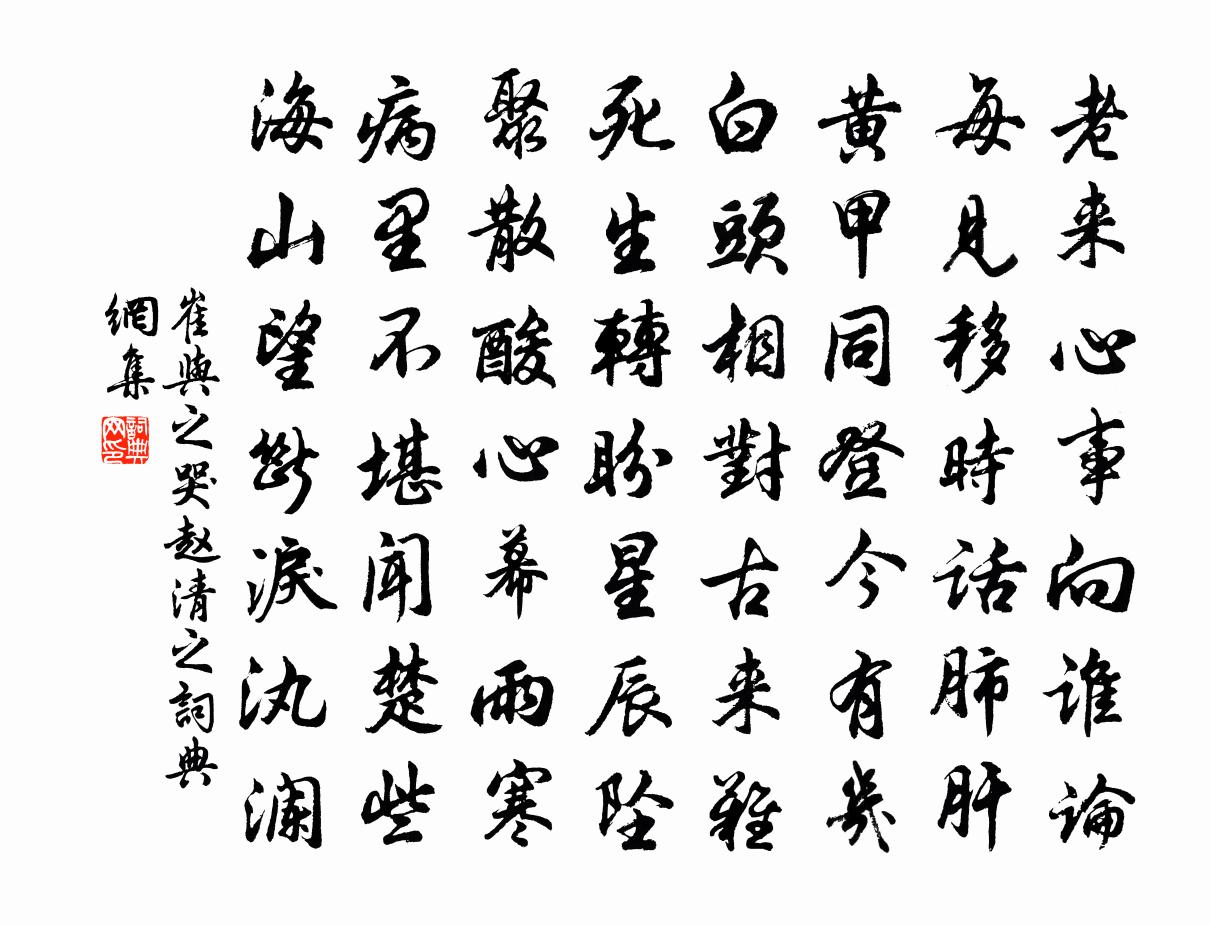 老来心事向谁論
每見移時話肺肝
黄甲同登今有幾
白頭相對古来難
死生轉盼星辰坠
聚散酸心幕雨寒
病里不堪聞楚些
海山望斷淚汍瀾
崔與之哭赵清之詞典
網集
詞典
网印